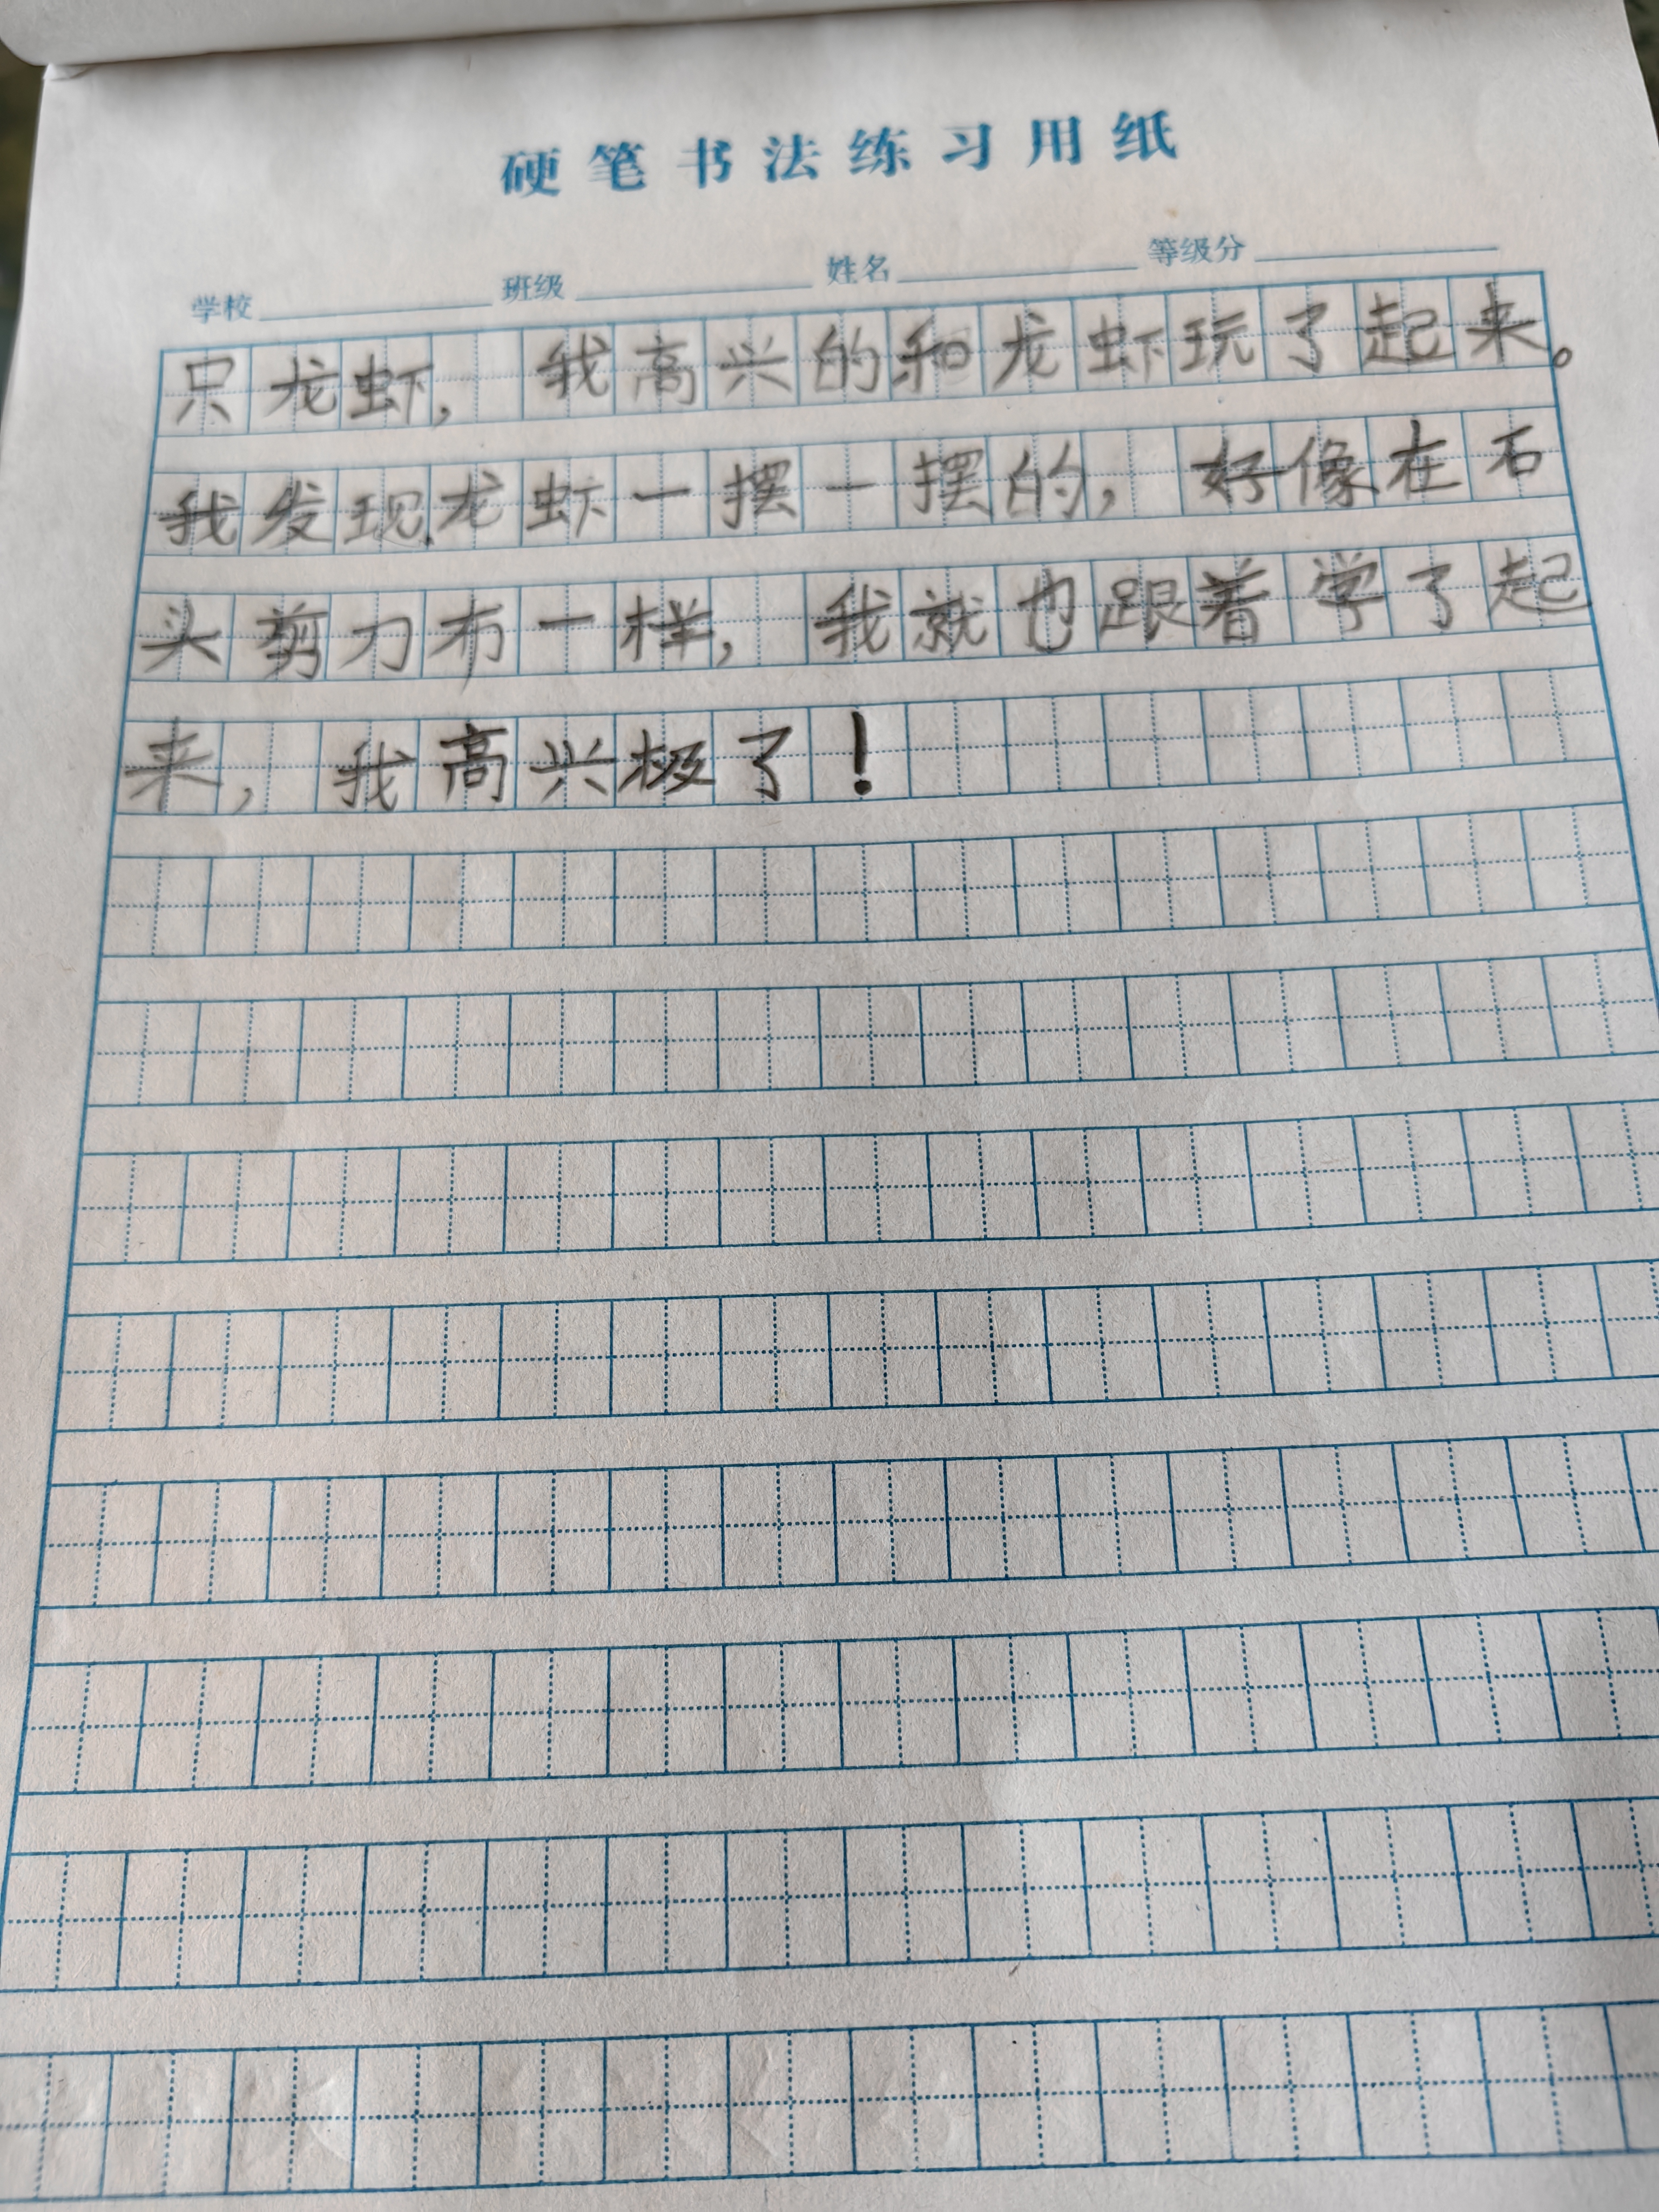 硬笔书法练习用纸
学校 班级 姓名 等级分
只龙虾，我高兴的和龙虾玩了起来。
我发现龙虾一摆一摆的，好像在石
头剪刀布一样，我就也跟着学了起
来，我高兴极了！